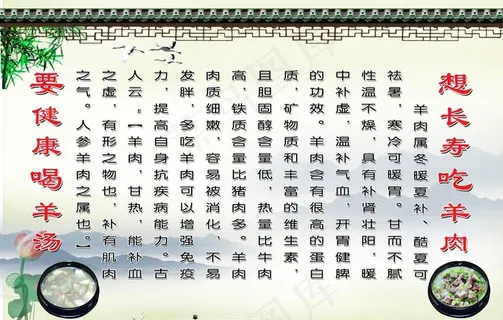 想长寿吃羊肉
羊肉属冬暖夏补、酷夏可
祛暑，寒冷可暖胃。甘而不腻
性温不燥，具有补肾壮阳，暖
中补虚，温补气血，开胃健脾
的功效。羊肉含有很高的蛋白
质，矿物质和丰富的维生素，
且胆固醇含量低，热量比牛肉
高，铁质含量比猪肉多。羊肉
肉质细嫩，容易被消化，不易
发胖，多吃羊肉可以增强免疫
力，提高自身抗疾病能力。古
人云：【羊肉，甘热，能补血
之虚，有形之物也，补有肌肉
之气。人参羊肉之属也。】
要健康喝羊汤